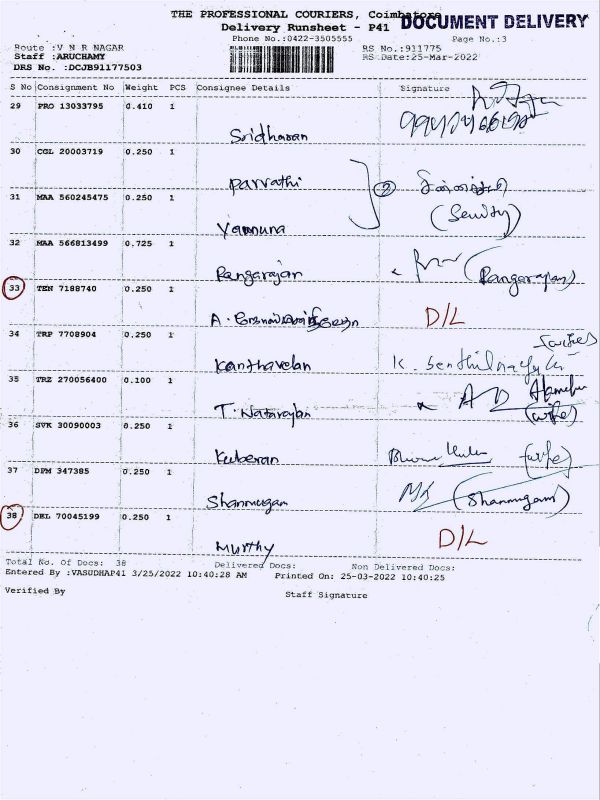 THE PROFESSIONAL COURIERS, Coimbatore
DOCUMENT DELIVERY
Delivery Runsheet - P41
Phone No.:0422-3505555
Page No.:3
Route :V N R NAGAR
RS No.:911775
Staff :ARUCHAMY
RS Date:25-Mar-2022
DRS No. :DCJB91177503
S No Consignment No Weight PCS Consignee Details Signature
29 PRO 13033795 0.410 1
Sridharan
30 CGL 20003719 0.250 1
Parvathi
②
31 MAA 560245475 0.250 1
Yamuna
32 MAA 566813499 0.725 1
Rangarajan (Rangarajan)
33 TEN 7188740 0.250 1
D/L
34 TRP 7708904 0.250 1
Kanthavelan
35 TRZ 270056400 0.100 1
T. Natarajan (wife)
36 SVK 30090003 0.250 1
Kuberan (wife)
37 DPM 347385 0.250 1
Shanmugam (Shanmugam)
38 DEL 70045199 0.250 1
Murthy D/L
Total No. Of Docs: 38 Delivered Docs: Non Delivered Docs:
Entered By :VASUDHAP41 3/25/2022 10:40:28 AM Printed On: 25-03-2022 10:40:25
Verified By Staff Signature